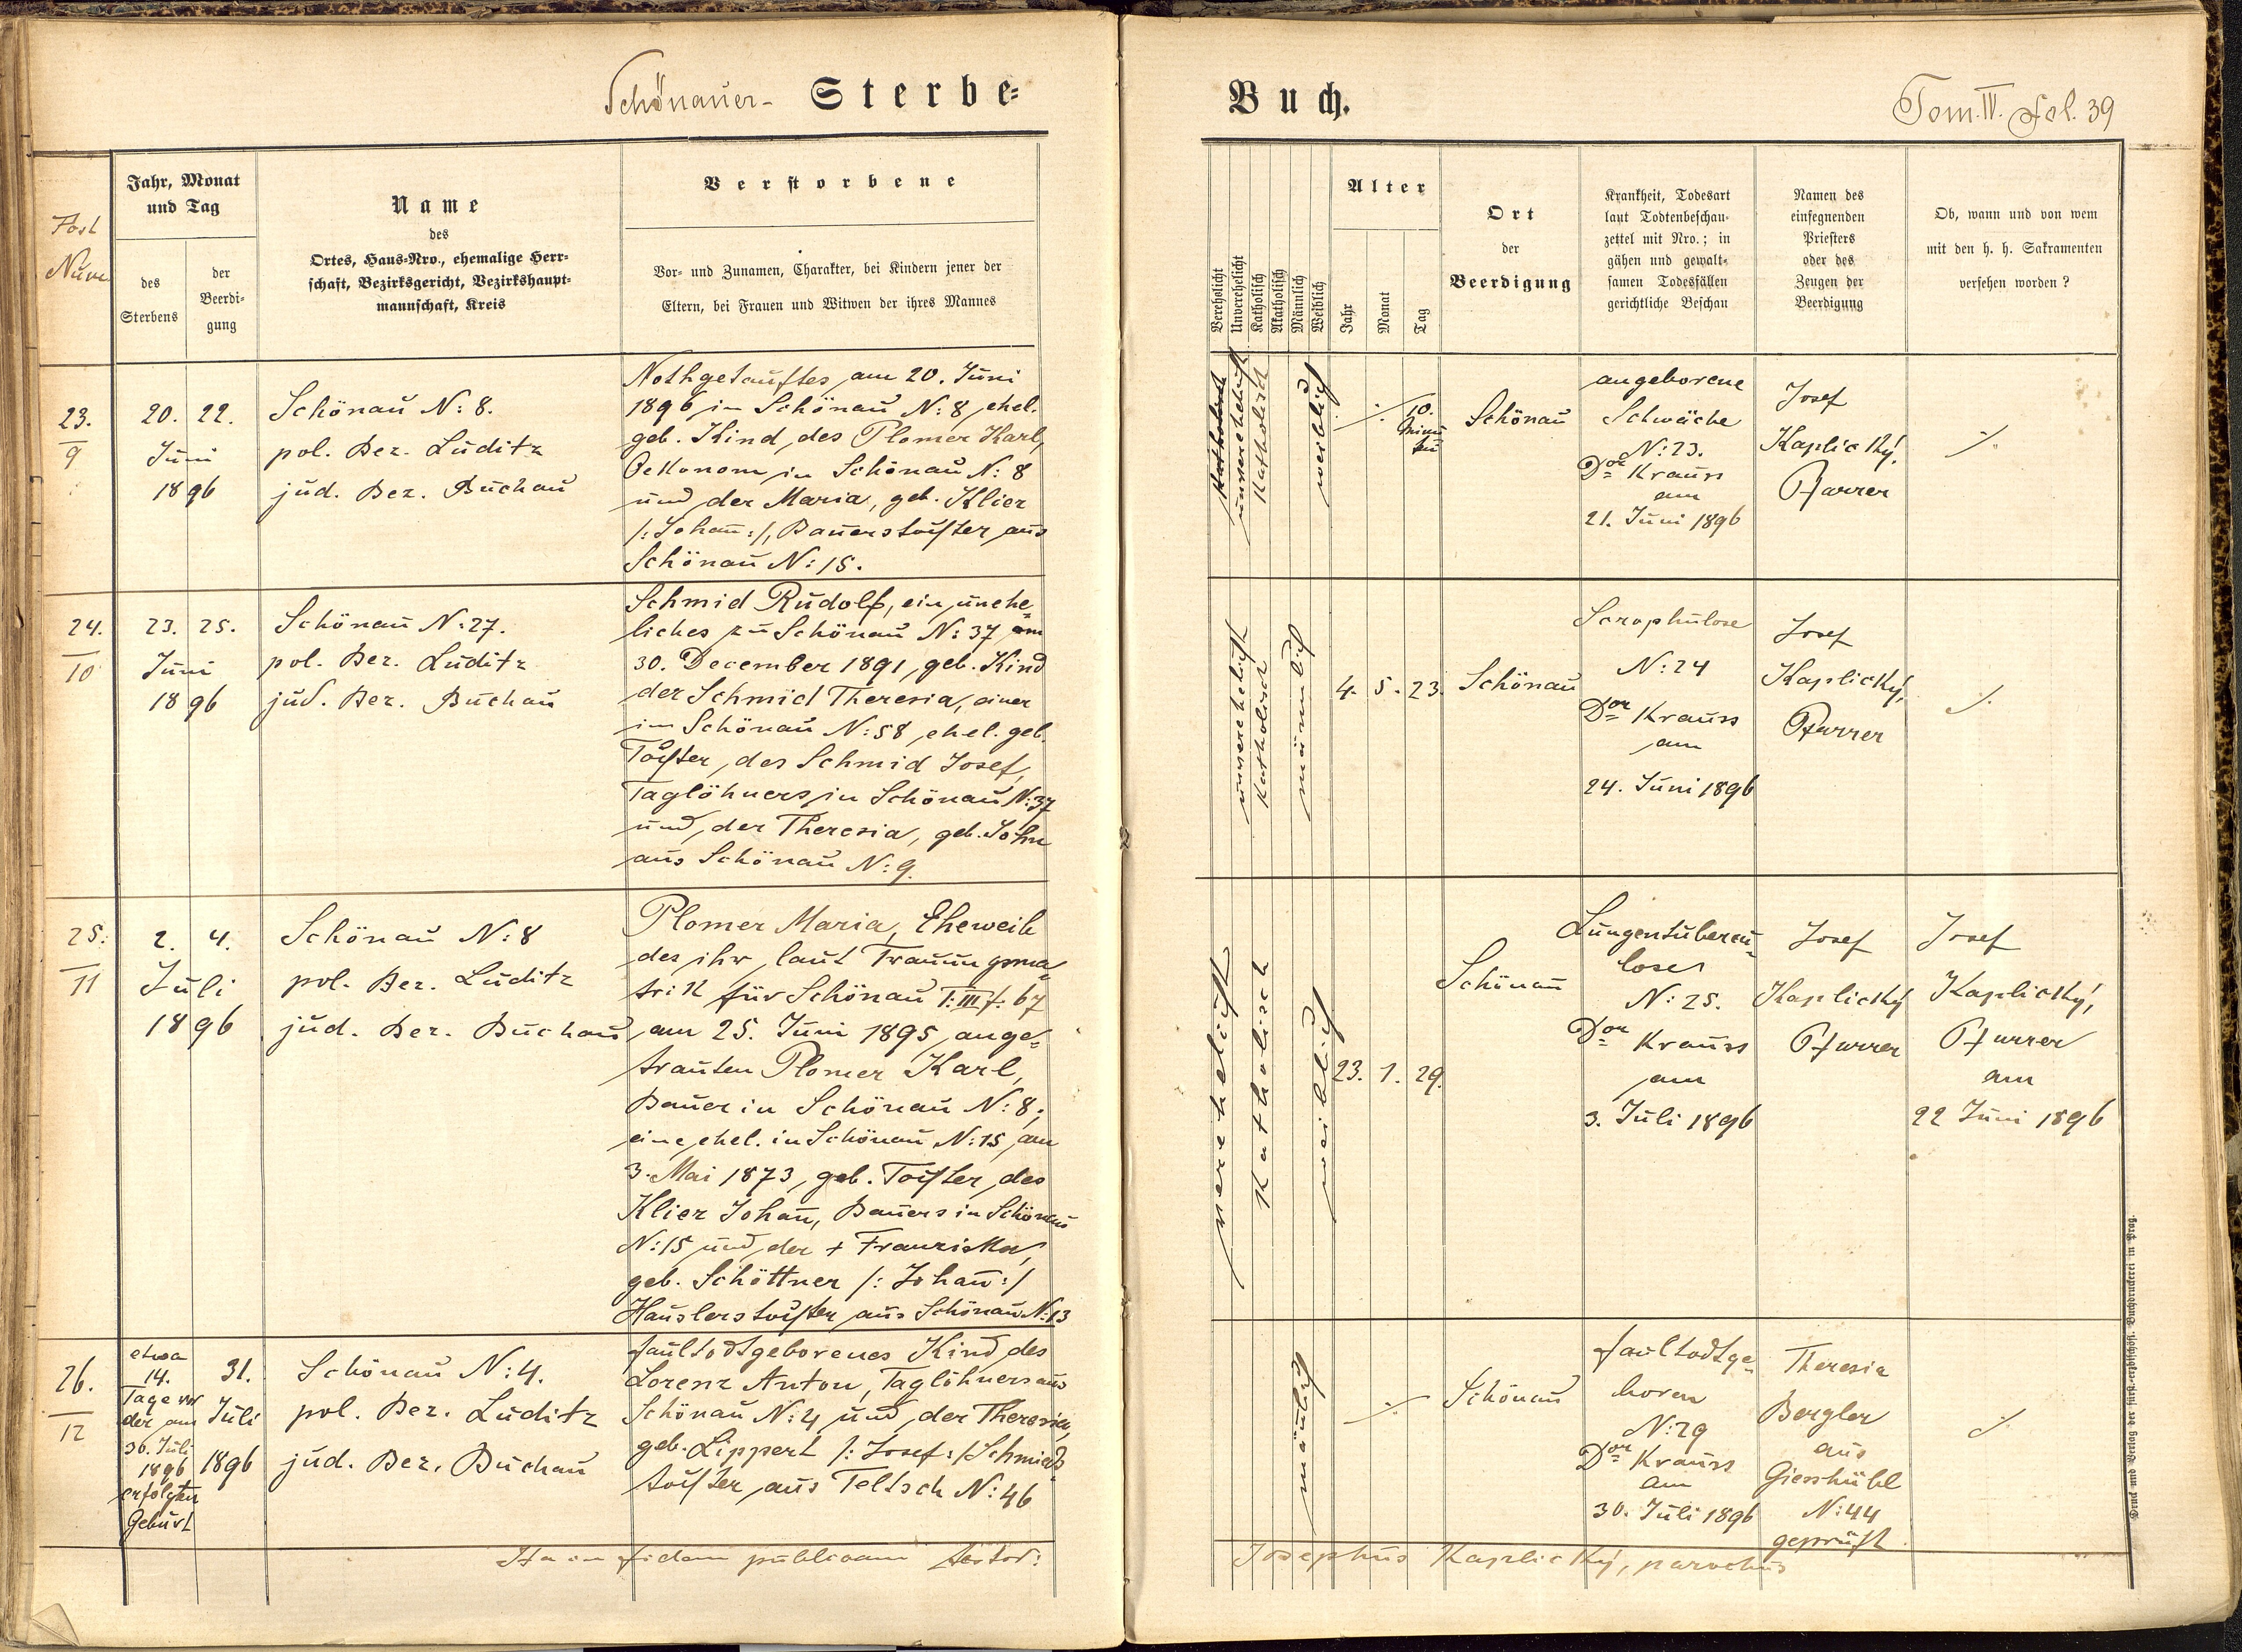 Schönauer- Sterbe-
Buch.
Tom. IV. fol. 39
Post
Num
Jahr, Monat
und Tag
des
Sterbens
der
Beerdi-
gung
Name
des
Ortes, Haus-Nro., ehemalige Herr-
schaft, Bezirksgericht, Bezirkshaupt-
mannschaft, Kreis
Verstorbene
Vor- und Zunamen, Charakter, bei Kindern jener der
Eltern, bei Frauen und Witwen der ihres Mannes
Verehelicht
Unverehelicht
Katholisch
Akatholisch
Männlich
Weiblich
Alter
Jahr
Monat
Tag
Ort
der
Beerdigung
Krankheit, Todesart
laut Todtenbeschau-
zettel mit Nro.; in
gähen und gewalt-
samen Todesfällen
gerichtliche Beschau
Namen des
einsegnenden
Priesters
oder des
Zeugen der
Beerdigung
Ob, wann und von wem
mit den h. h. Sakramenten
versehen worden?
23.
9
20. 22.
Juni
1896
Schönau N: 8.
pol. Bez. Luditz
jud. Bez. Buchau
Nothgetauftes, am 20. Juni
1896 in Schönau N: 8, ehel.
geb. Kind, des Plomer Karl,
Oekonom in Schönau N: 8
und der Maria, geb. Klier
/: Johann :/, Bauerstochter aus
Schönau N: 15.
Katholisch
unverehelicht
Katholisch
weiblich
·/·
10.
Minu
ten
Schönau
angeborene
Schwäche
N: 23.
Dor Krauss
am
21. Juni 1896
Josef
Kaplický,
Pfarrer
·/·
24.
10
23. 25.
Juni
1896
Schönau N: 27.
pol. Bez. Luditz
jud. Bez. Buchau
Schmid Rudolf, ein, unehe-
liches zu Schönau N: 37 am
30. December 1891, geb. Kind
der Schmid Theresia, einer
in Schönau N: 58, ehel. geb.
Tochter, des Schmid Josef,
Taglöhners, in Schönau N: 37
und, der Theresia, geb. John
aus Schönau N: 9.
unverehelicht
Katholisch
männlich
4. 5. 23.
Schönau
Scrophulose
N: 24
Dor Krauss
am
24. Juni 1896
Josef
Kaplický,
Pfarrer
·/·
25.
11
2. 4.
Juli
1896
Schönau N: 8
pol. Bez. Luditz
jud. Bez. Buchau
Plomer Maria, Eheweib
des ihr, laut Trauungsma-
trik für Schönau T: III f: 67
am 25. Juni 1895, ange-
trauten Plomer Karl,
Bauer in Schönau N: 8;
eine, ehel. in Schönau N: 15, am
3. Mai 1873, geb. Tochter, des
Klier Johann, Bauers in Schönau
N: 15 und, der + Franziska,
geb. Schöttner /: Johann :/
Häuslerstochter, aus Schönau N: 13
verehelicht
Katholisch
weiblich
23. 1. 29.
Schönau
Lungentubercu-
lose
N: 25.
Dor Krauss
am
3. Juli 1896
Josef
Kaplický
Pfarrer
Josef
Kaplický,
Pfarrer
am
22 Juni 1896
26.
12
etwa
14.
Tage vor
der am
30. Juli
1896
erfolgten
Geburt
31.
Juli
1896
Schönau N: 4.
pol. Bez. Luditz
jud. Bez. Buchau
faultodtgeborenes Kind, des
Lorenz Anton, Taglöhners aus
Schönau N: 4 und, der Theresia,
geb. Lippert /: Josef :/ Schmied-
tochter, aus Teltsch N: 46
männlich
·/·
Schönau
faultodtge-
boren
N: 29
Dor Krauss
am
30. Juli 1896
Theresia
Bergler
aus
Giesshübl
N: 44
geprüft
·/·
Ita in fidem publicam testor:
Josephus Kaplický, parochus
Druck und Verlag der fürst-erzbischöfl. Buchdruckerei in Prag.